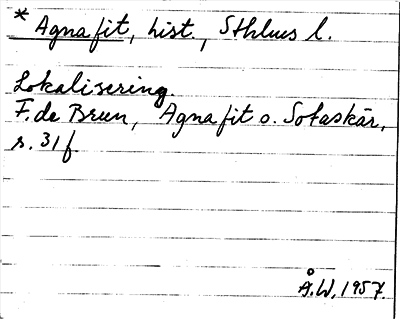 * Agnafit, hist., Sthlms l.
Lokalisering.
F. de Brun, Agnafit o. Sotaskär,
s. 31 f
Å.W. 1957.